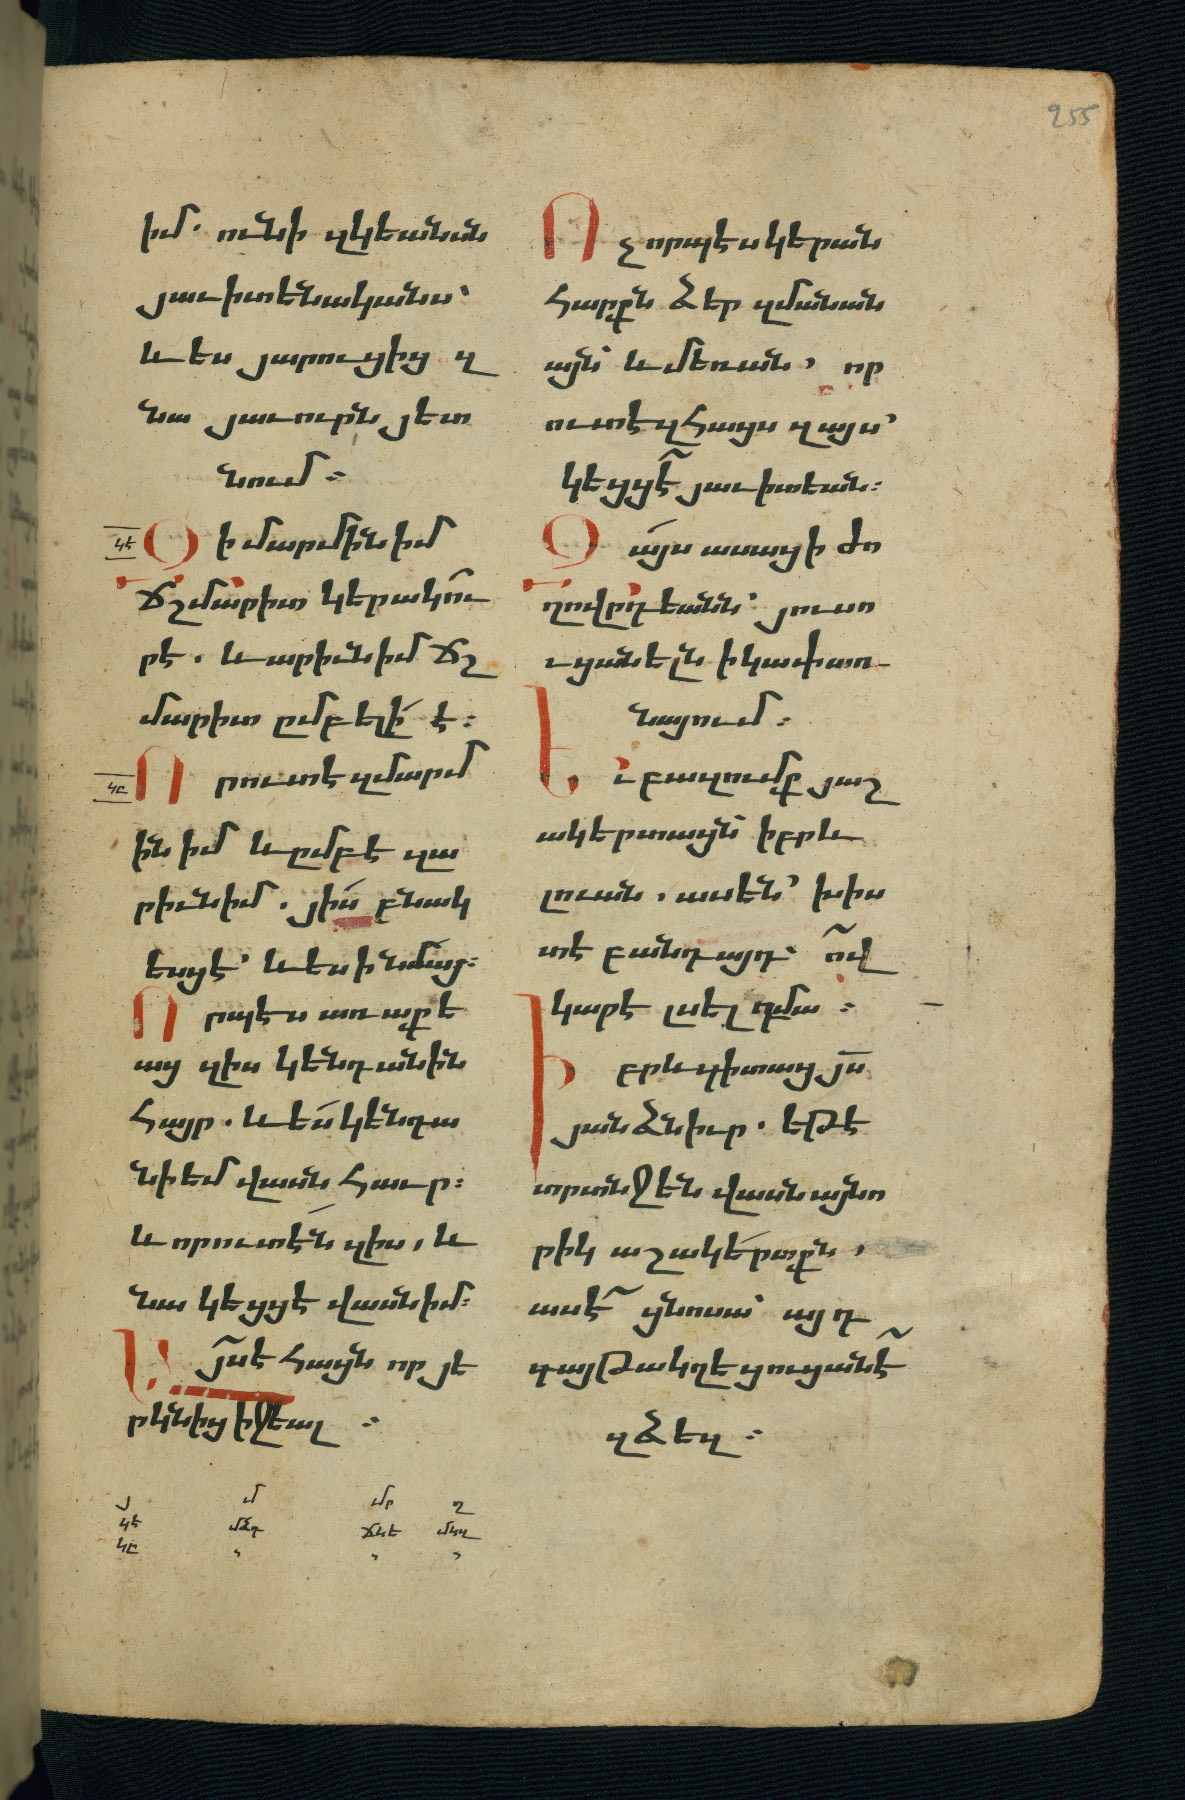 255
իմ. ունի զկեանսն
յաւիտենականս՝
և ես յարուցից զ
նա յաւուրն յետ
նում ։
կե
Զի մարմին իմ
ճշմարիտ կերակու
րէ. և արիւն իմ ճշ
մարիտ ըմբելի է ։
կը
Որ ուտէ զմարմ
ին իմ և ըմբէ զա
րիւն իմ. յիս բնակ
եսցէ՝ և ես ի նմայ ։
Որպէս առաքե
աց զիս կենդանին
Հայր. և ես կենդա
նի եմ վասն Հաւր ։
և որ ուտէն զիս, և
նա կեցցէ վասն իմ ։
Այս է Հացն որ յե
րկնից իջեալ ։
Ոչ որպէս կերան
Հարքն ձեր զմանան
այն՝ և մեռան, որ
ուտէ զՀացս զայս՝
կեցցէ յաւիտեան ։
Զայս ասաց ի ժո
ղովրդեանն՝ յուսո
ւցանելն ի կափառ
նայում ։
Եւ բազումք յաշ
ակերտացն՝ իբրև
լուան, ասեն՝ խիս
տ է բանդ այդ՝ ով
կարէ լսել դմա ։
Իբրև գիտաց յս
յանձնիւր. եթէ
տրտնջեն վասն այնո
րիկ աշակերտքն,
ասէ ցնոսա՝ այդ
գայթակղեցուցանէ
զձեզ ։
յ մ մր ղ
կե մճդ ճկե մկզ
կը